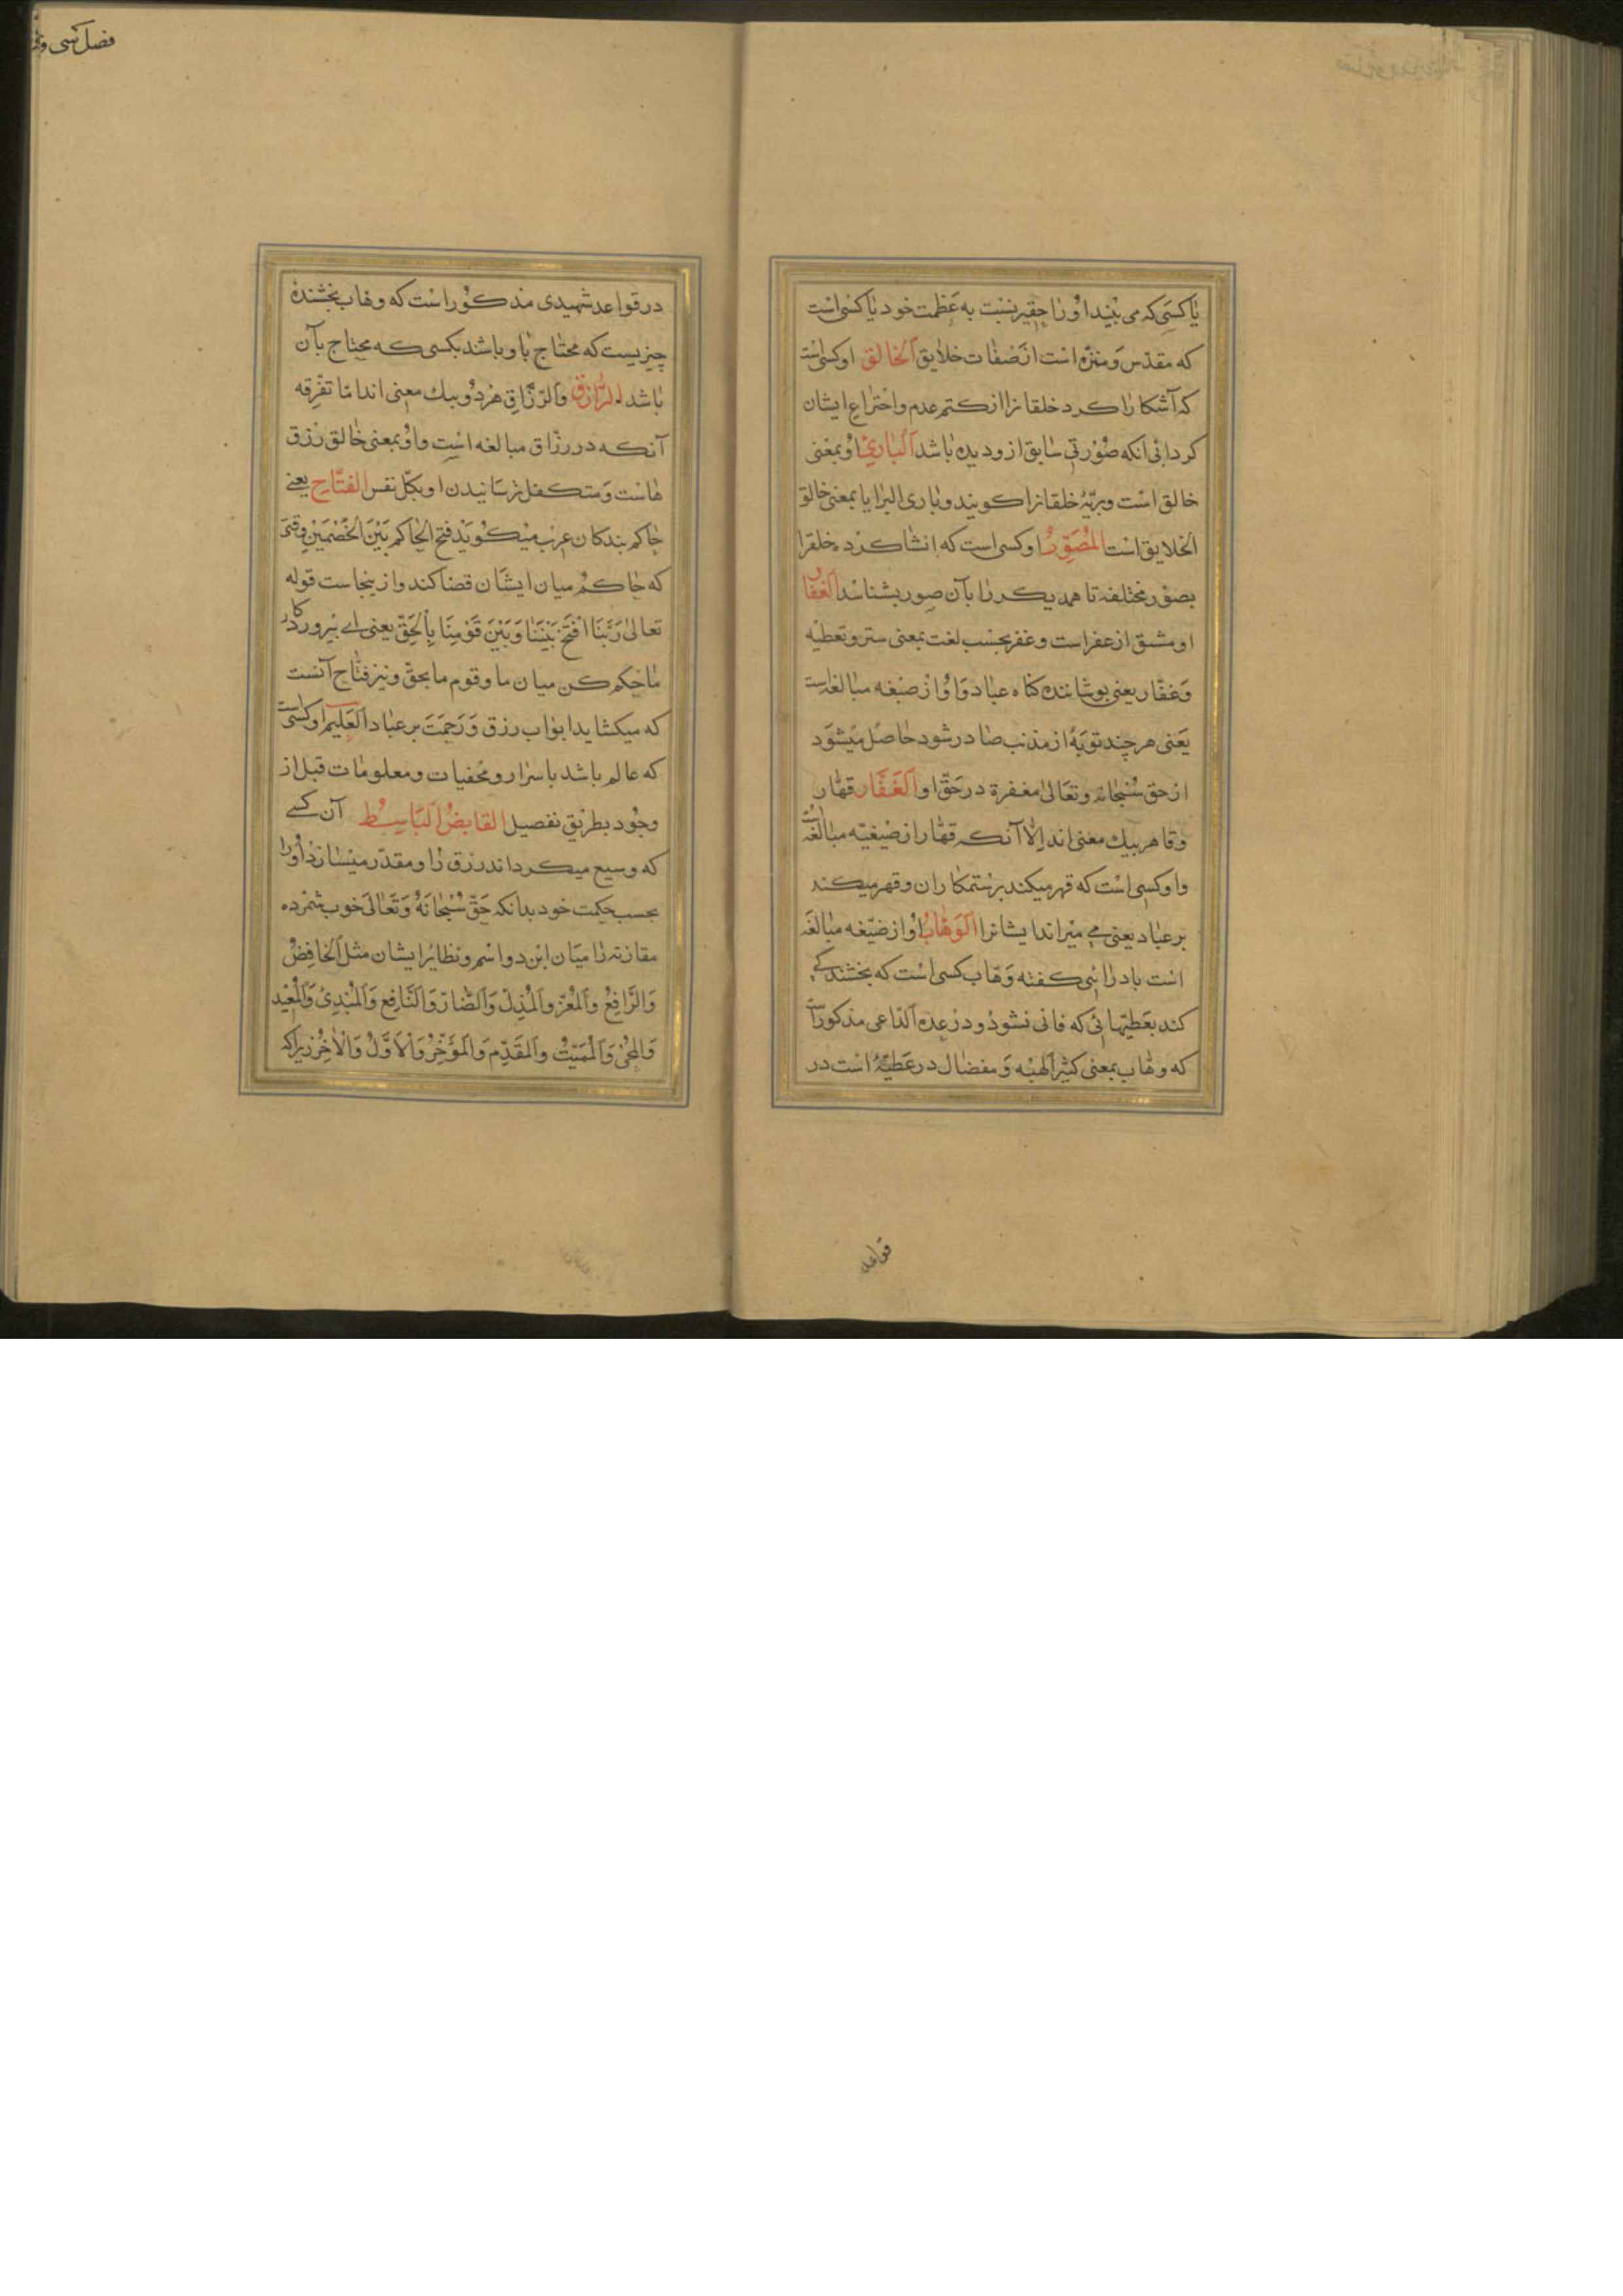 یا کسی که می بیند او را حقیر نسبت به عظمت خود یا کسی است
که مقدس و منزه است از صفات خلایق الخالق او کسی است
که آشکارا کرد خلقانرا از کتم عدم و اختراع ایشان
کرد بی آنکه صورتی سابق ازو دیده باشد الباریُ او بمعنی
خالق است و بریّه خلقانرا کویند و باری البرایا بمعنی خالق
الخلایق است المصوّرُ او کسی است که انشا کرده خلقرا
بصور مختلفه تا همدیکر را بآن صور بشناسند الغفار
او مشتق از غفر است و غفر بحسب لغت بمعنی ستر و تغطیه
و غفّار یعنی پوشاننده کناه عباد و او از صیغه مبالغه است
یعنی هر چند توبهٔ از مذنب صادر شود حاصل میشود
از حق سبحانه و تعالی مغفرة در حقّ او الغفّار قهّار
و قاهر بیک معنی اند الّا آنکه قهّار از صیغیّه مبالغه است
و او کسی است که قهر میکند بر ستمکاران و قهر میکند
بر عباد یعنی می میراند ایشانرا الوهّابُ او از صیغه مبالغه
است بادرائی کفته وهّاب کسی است که بخشندکی
کند بعطیّهائی که فانی نشود و در عدة الدّاعی مذکور است
که وهّاب بمعنی کثیر الهبه و مفضال در عطیّه است در
قواعد
فصل سی و
در قواعد شهیدی مذکور است که وهاب بخشندهٔ
چیزیست که محتاج باو باشد بکسی که محتاج بآن
باشد الرازق والرّزّاق هر دو بیک معنی اند امّا تفرقه
آنکه در رزّاق مبالغه است و او بمعنی خالق رزق
هاست و متکفل رسانیدن او بکلّ نفس الفتّاح یعنی
حاکم بندکان عرب میکویند فتح الحاکم بین الخصمین وقتی
که حاکم میان ایشان قضا کند و ازینجاست قوله
تعالی ربّنا افتح بیننا و بین قومنا بالحقّ یعنی ای پرورد کار
ما حکم کن میان ما و قوم ما بحقّ و نیز فتّاح آنست
که میکشاید ابواب رزق و رحمت بر عباد العلیم او کسی است
که عالم باشد باسرار و مخفیات و معلومات قبل از
وجود بطریق تفصیل القابضُ الباسِطُ آن کسی
که وسیع میکرداند رزق را و مقدّر میسازد او را
بحسب حکمت خود بدانکه حقّ سبحانهُ و تعالی خوب شمرده
مقارنه را میان این دو اسم و نظایر ایشان مثل الخافضُ
والرّافعُ والمعزّ والمذلّ والضّارّ والنّافع والمبدئ والمعید
والمحیی والممیتُ والمقدّم والمؤخّرُ والاوّلُ والاخرُ زیرا که